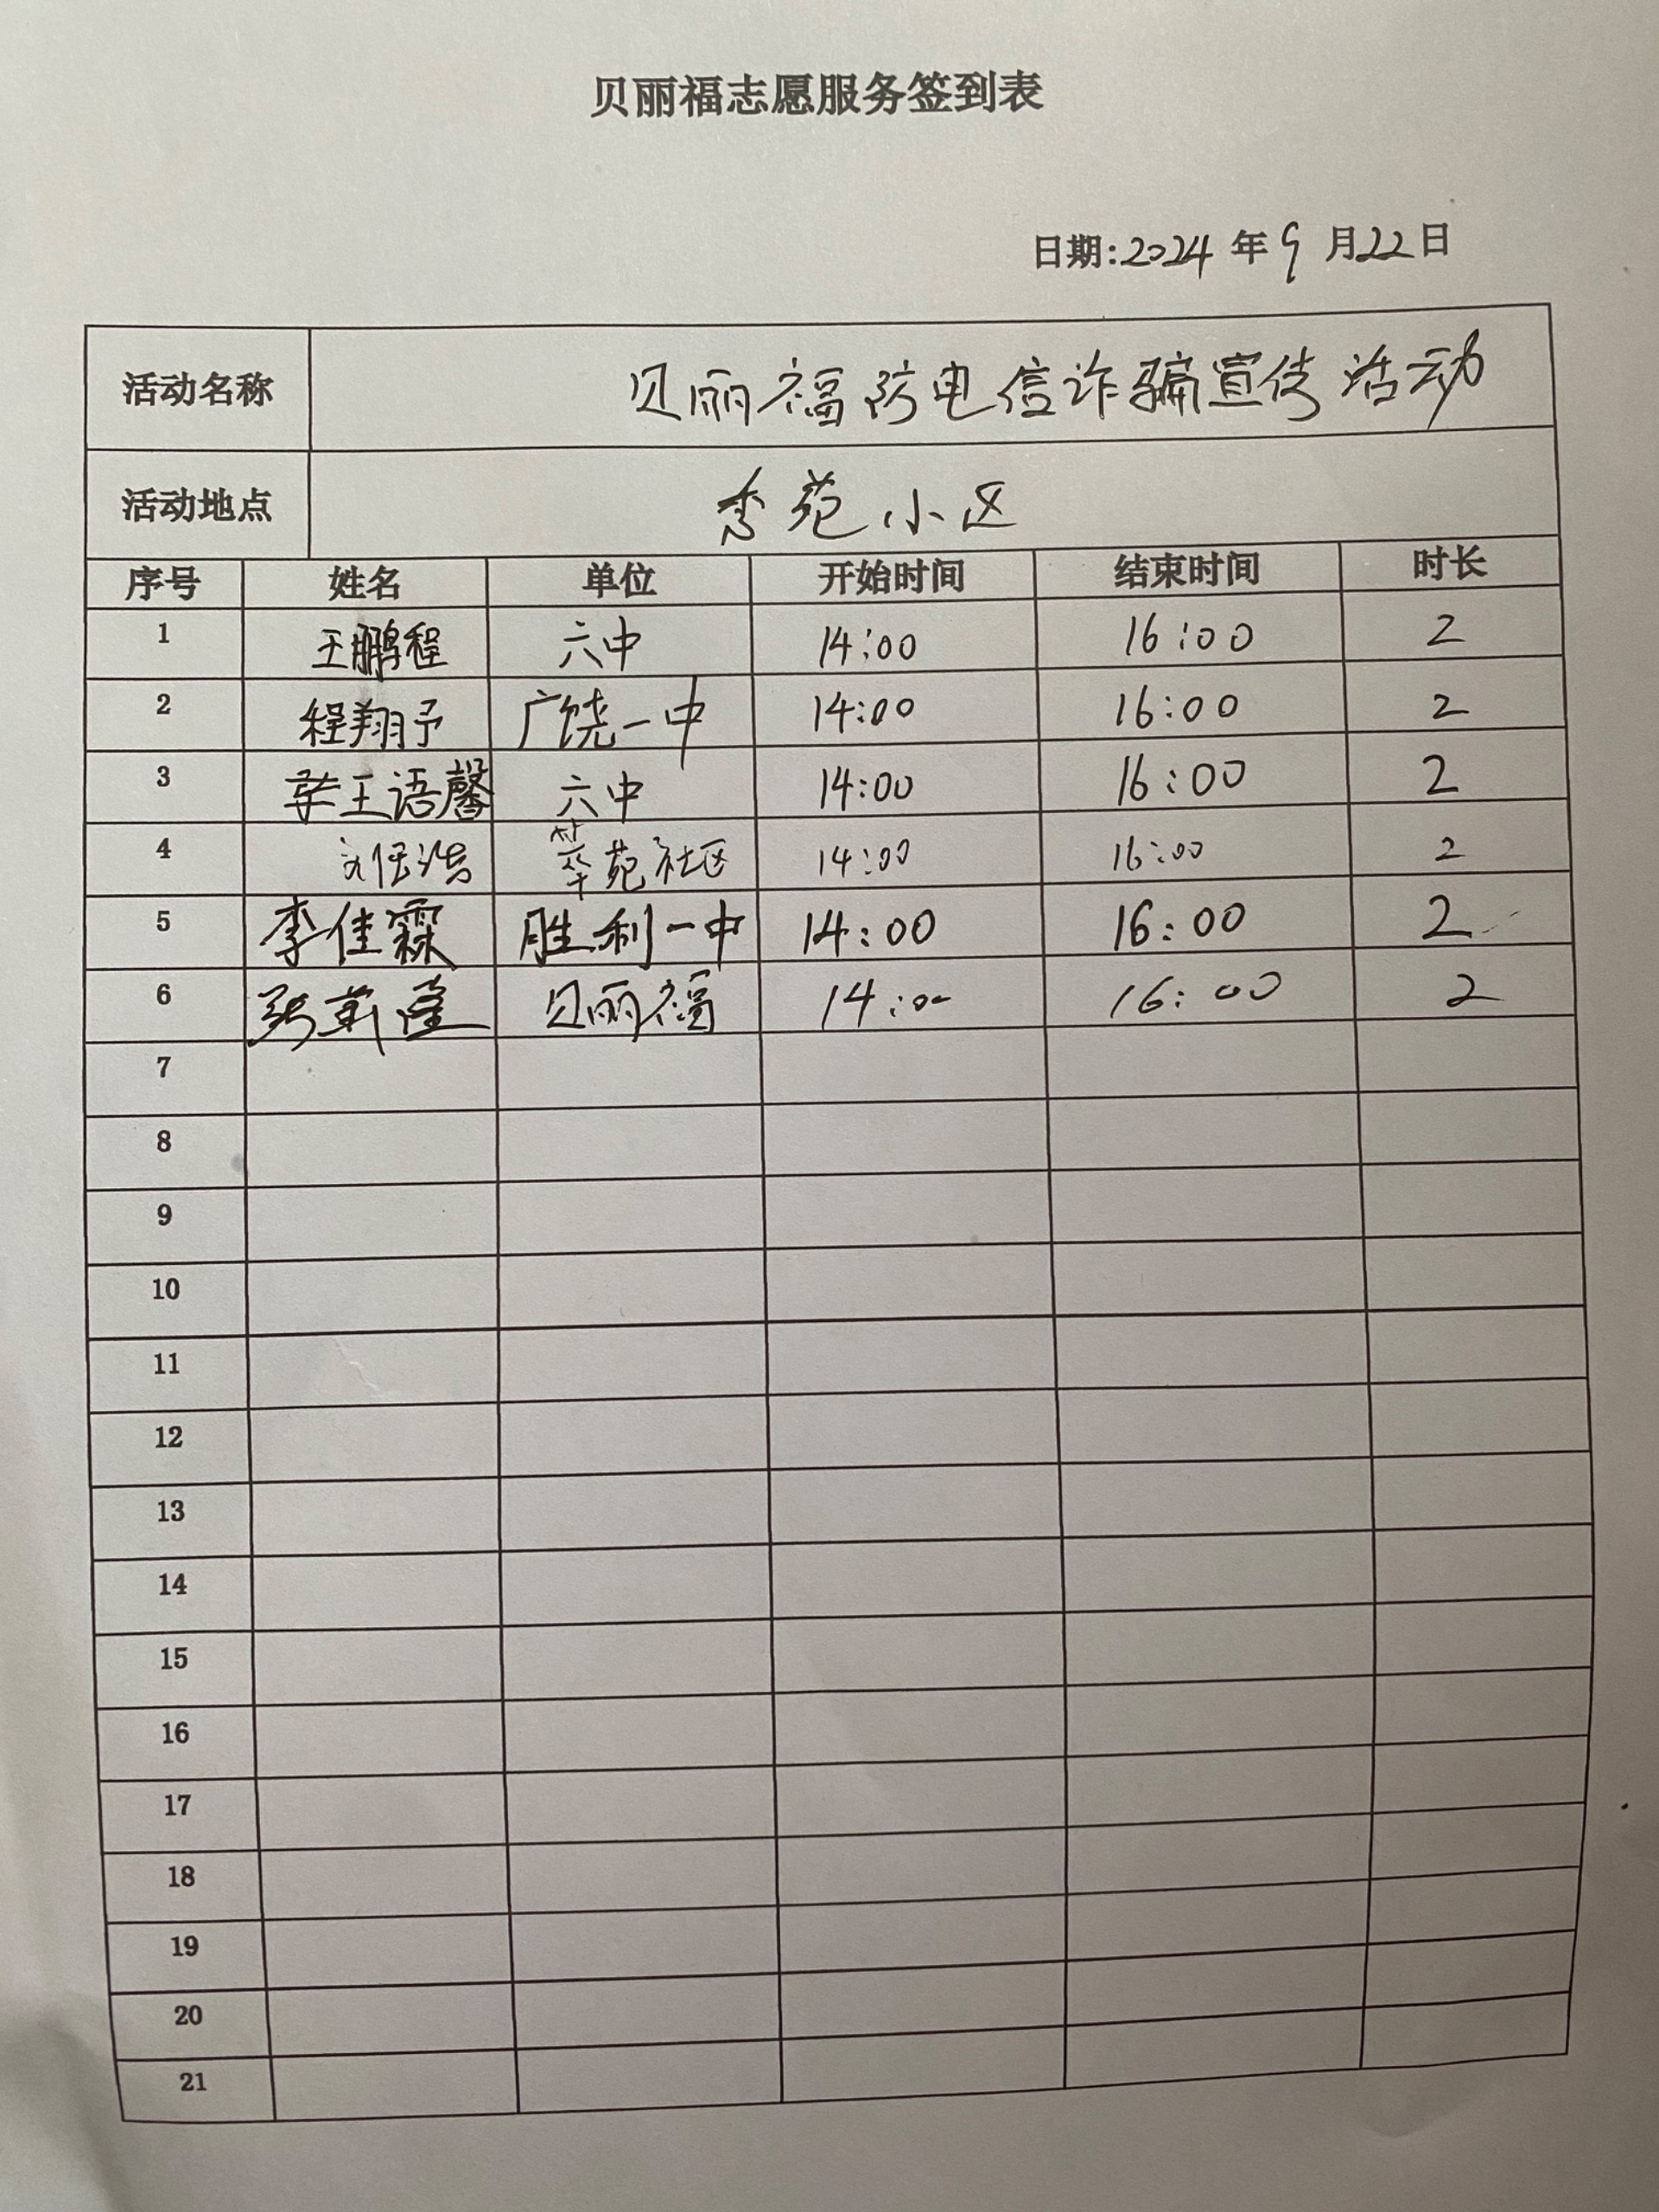 贝丽福志愿服务签到表
日期:2024 年 9 月22日
活动名称 贝丽福防电信诈骗宣传活动
活动地点 秀苑小区
序号 姓名 单位 开始时间 结束时间 时长
1 王鹏程 六中 14:00 16:00 2
2 程翔予 广饶一中 14:00 16:00 2
3 王语馨 六中 14:00 16:00 2
4 苑社区 14:00 16:00 2
5 李佳霖 胜利一中 14:00 16:00 2
6 贝丽福 14:00 16:00 2
7
8
9
10
11
12
13
14
15
16
17
18
19
20
21